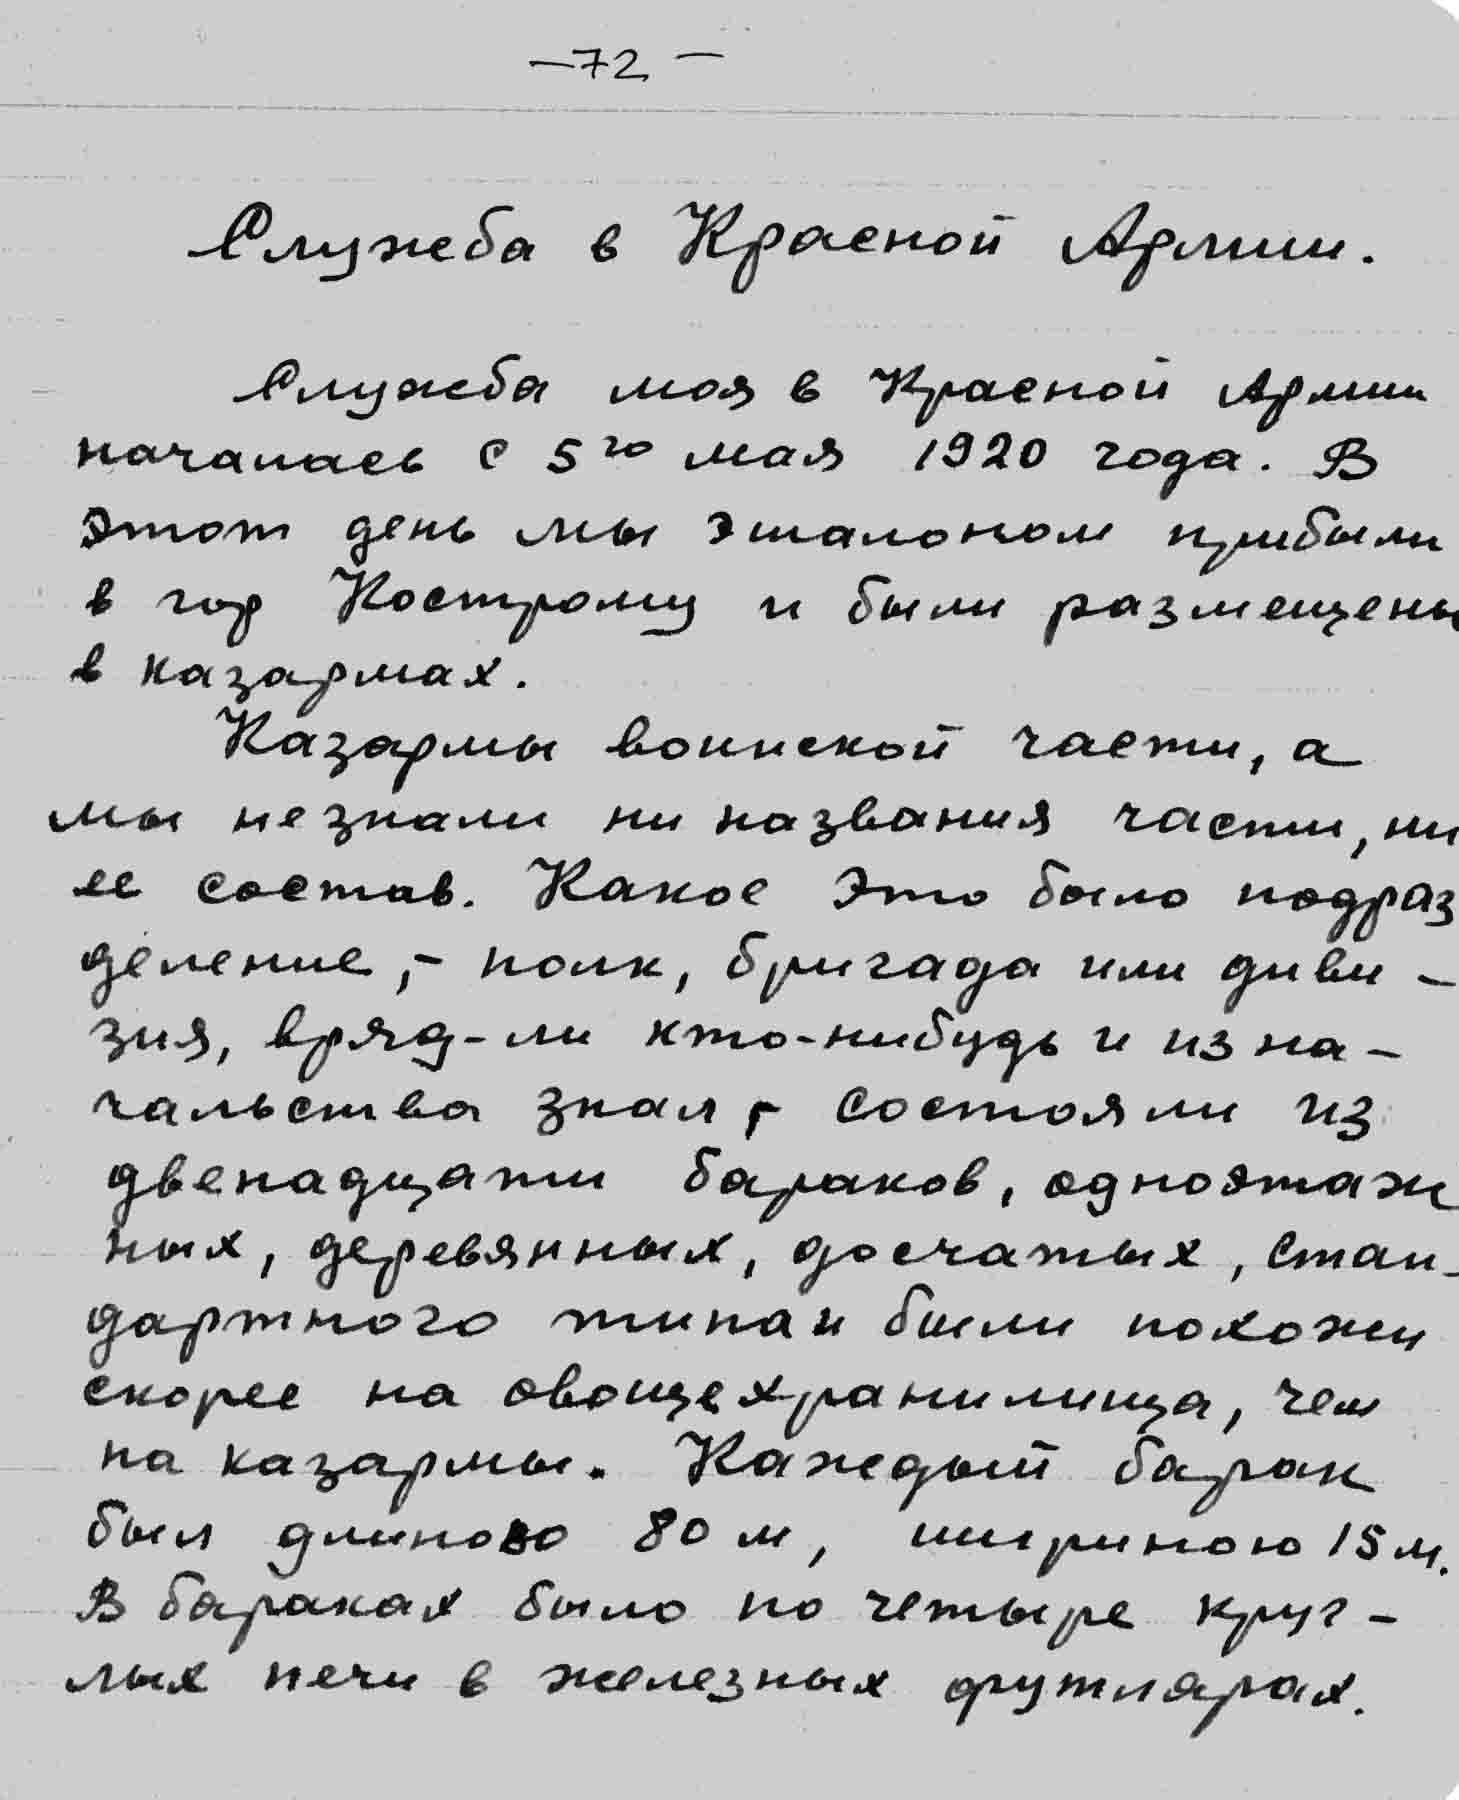 —72—
Служба в Красной Армии.
Служба моя в Красной Армии
началась с 5го мая 1920 года. В
этот день мы эшалоном прибыли
в гор Кострому и были размещены
в казармах.
Казармы воинской части, а
мы незнали ни названия части, ни
ее состав. Какое это было подраз
деление, - полк, бригада или диви-
зия, вряд-ли кто-нибудь и из на-
чальства знал, - состояли из
двенадцати бараков, одноэтаж
ных, деревянных, досчатых, стан-
дартного типа и были похожи
скорее на овощехранилища, чем
на казармы. Каждый барак
был длиною 80 м, шириною 15 м.
В бараках было по четыре круг-
лых печи в железных футлярах.